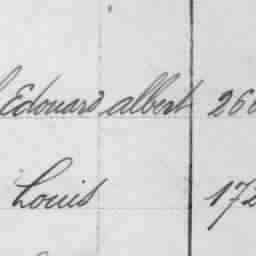 Edouard albert 266
Louis 172